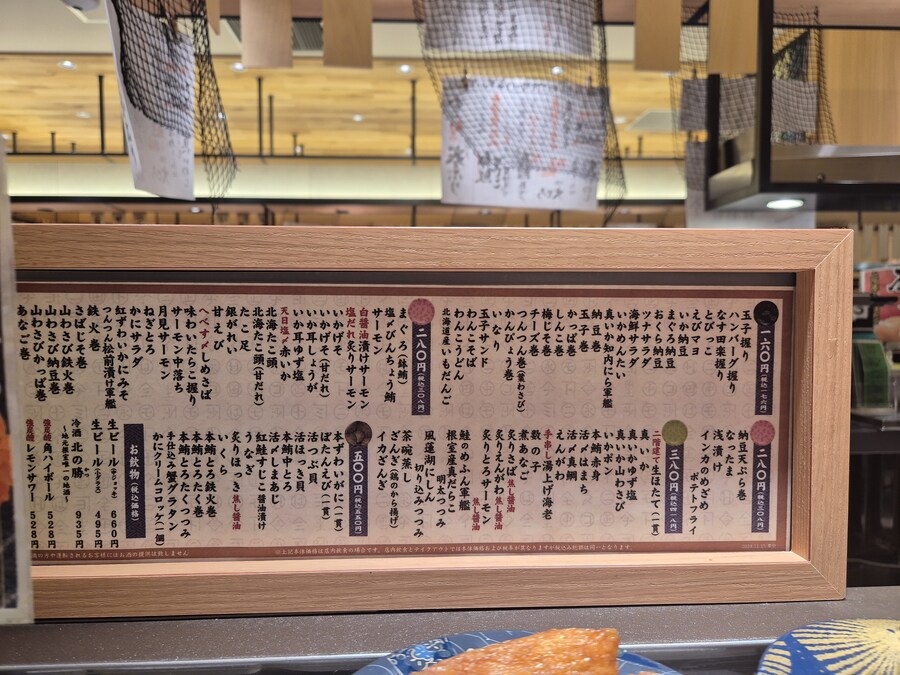 一六〇円(税込一七六円)
玉子握り
ハンバーグ握り
なす田楽握り
とびっこ
えびマヨ
いか納豆
まぐろ納豆
おくら納豆
ツナサラダ
海鮮サラダ
いかめんたい
真いか知内にら軍艦
納豆巻
玉子巻
かっぱ巻
しんこ巻
梅しそ巻
チーズ巻
つんつん巻(葉わさび)
かんぴょう巻
いなり
玉子サンド
わんこそば
わんこうどん
北海道産いもだんご
二八〇円(税込三〇八円)
まぐろ(鉢鮪)
塩〆びんちょう鮪
サーモン
白醤油漬けサーモン
塩だれ炙りサーモン
いかげそ
いかげそ(甘だれ)
いか耳しょうが
いか耳ゆず塩
天日塩〆赤いか
北海たこ頭
北海たこ頭(甘だれ)
たこ足
銀がれい
甘えび
へべす〆しめさば
味わいたらこ握り
サーモン中落ち
月見サーモン
ねぎとろ
かにサラダ
紅ずわいかにみそ
つんつん松前漬け軍艦
鉄火巻
さばじそ巻
山わさび鉄火巻
山わさび納豆巻
山わさびかっぱ巻
あなご巻
二八〇円(税込三〇八円)
納豆天ぷら巻
なたま
浅漬け
インカのめざめ
ポテトフライ
三八〇円(税込四一八円)
二階建て生ほたて(一貫)
真いか
真いかゆず塩
真いか山わさび
いかポン
本鮪赤身
活〆はまち
活〆真鯛
えんがわ
手串し湯上げ海老
数の子
煮あなご
炙りさば焦し醤油
炙りえんがわ焦し醤油
炙りとろサーモン
鮭のめふん軍艦
根室産真だらこ
明太つつみ
切り込みつつみ
風蓮湖にしん
茶碗蒸し
ざんぎ(鶏のから揚げ)
イカざんぎ
五〇〇円(税込五五〇円)
本ずわいがに(一貫)
ぼたんえび(一貫)
活つぶ貝
活ほっき貝
本鮪中とろ
活〆しまあじ
紅鮭すじこ醤油漬け
うなぎ
炙りほっき焦し醤油
いくら
本鮪とろ鉄火巻
本鮪とろたく巻
本鮪とろたくつつみ
手仕込み蟹グラタン
かにクリームコロッケ(一個)
お飲物(税込価格)
生ビール(ジョッキ) 660円
生ビール(グラス) 495円
冷酒 北の勝 935円
~地元根室唯一の地酒~
強炭酸角ハイボール 528円
強炭酸レモンサワー 528円
※上記本体価格は店内飲食の場合です。店内飲食とテイクアウトでは本体価格および税率が異なりますが税込み売価は同一となります。